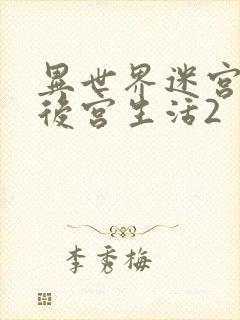 異世界迷宮
後宮生活2
李秀梅